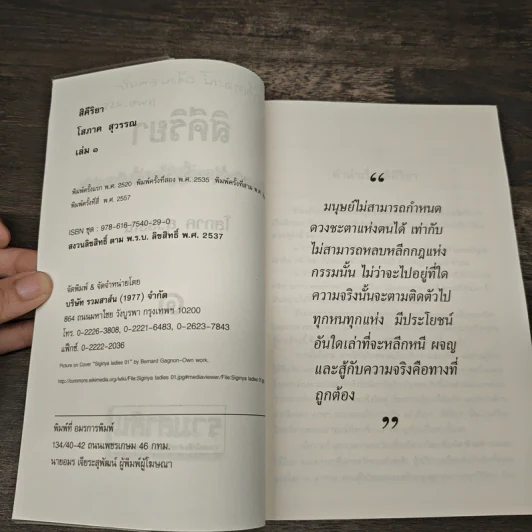 สิคีริยา
โสภาค สุวรรณ
เล่ม ๑
พิมพ์ครั้งแรก พ.ศ. 2520 พิมพ์ครั้งที่สอง พ.ศ. 2535 พิมพ์ครั้งที่สาม พ.ศ.
พิมพ์ครั้งที่สี่ พ.ศ. 2557
ISBN ชุด : 978-616-7540-29-0
สงวนลิขสิทธิ์ ตาม พ.ร.บ. ลิขสิทธิ์ พ.ศ. 2537
จัดพิมพ์ & จัดจำหน่ายโดย
บริษัท รวมสาส์น (1977) จำกัด
864 ถนนมหาไชย วังบูรพา กรุงเทพฯ 10200
โทร. 0-2226-3808, 0-2221-6483, 0-2623-7843
แฟ็กซ์. 0-2222-2036
Picture on Cover "Sigiriya ladies 01" by Bernard Gagnon-Own work.
http://commons.wikimedia.org/wiki/File:Sigiriya_ladies_01.jpg#mediaviewer/File:Sigiriya ladies
พิมพ์ที่ อมรการพิมพ์
134/40-42 ถนนเพชรเกษม 46 กทม.
นายอมร เจียระสุพัฒน์ ผู้พิมพ์ผู้โฆษณา
“
มนุษย์ไม่สามารถกำหนด
ดวงชะตาแห่งตนได้ เท่ากับ
ไม่สามารถหลบหลีกกฎแห่ง
กรรมนั้น ไม่ว่าจะไปอยู่ที่ใด
ความจริงนั้นจะตามติดตัวไป
ทุกหนทุกแห่ง มีประโยชน์
อันใดเล่าที่จะหลีกหนี ผจญ
และสู้กับความจริงคือทางที่
ถูกต้อง
”